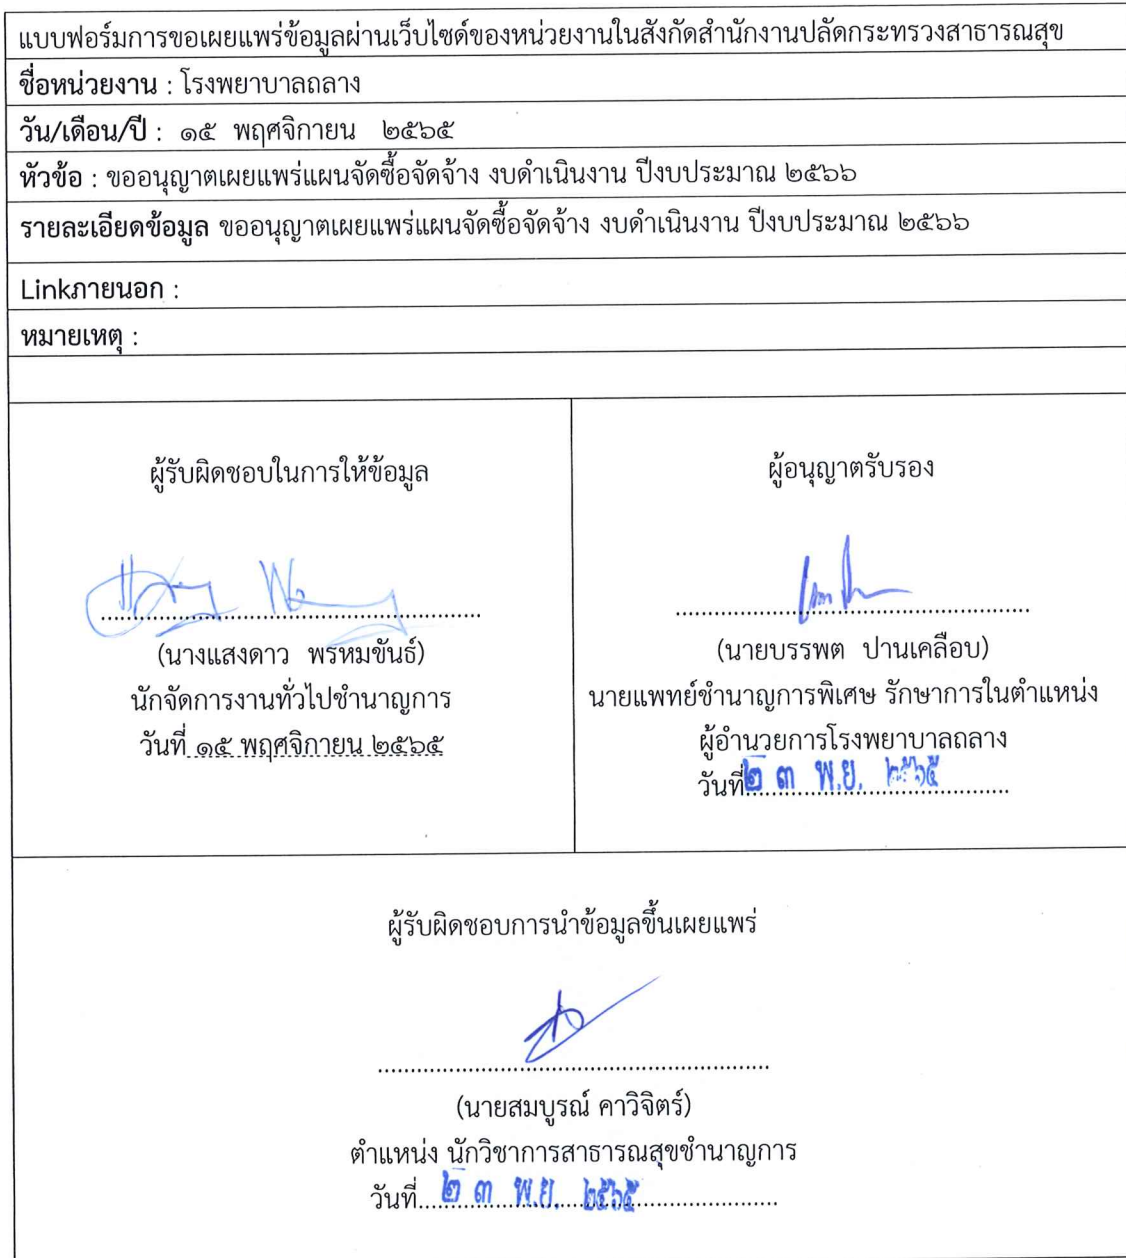 แบบฟอร์มการขอเผยแพร่ข้อมูลผ่านเว็บไซด์ของหน่วยงานในสังกัดสำนักงานปลัดกระทรวงสาธารณสุข
ชื่อหน่วยงาน : โรงพยาบาลถลาง
วัน/เดือน/ปี : ๑๕ พฤศจิกายน ๒๕๖๕
หัวข้อ : ขออนุญาตเผยแพร่แผนจัดซื้อจัดจ้าง งบดำเนินงาน ปีงบประมาณ ๒๕๖๖
รายละเอียดข้อมูล ขออนุญาตเผยแพร่แผนจัดซื้อจัดจ้าง งบดำเนินงาน ปีงบประมาณ ๒๕๖๖
Linkภายนอก :
หมายเหตุ :
ผู้รับผิดชอบในการให้ข้อมูล
(นางแสงดาว พรหมขันธ์)
นักจัดการงานทั่วไปชำนาญการ
วันที่ ๑๕ พฤศจิกายน ๒๕๖๕
ผู้อนุญาตรับรอง
(นายบรรพต ปานเคลือบ)
นายแพทย์ชำนาญการพิเศษ รักษาการในตำแหน่ง
ผู้อำนวยการโรงพยาบาลถลาง
วันที่ ๒ ๓ พ.ย. ๒๕๖๕
ผู้รับผิดชอบการนำข้อมูลขึ้นเผยแพร่
(นายสมบูรณ์ คาวิจิตร์)
ตำแหน่ง นักวิชาการสาธารณสุขชำนาญการ
วันที่ ๒ ๓ พ.ย. ๒๕๖๕